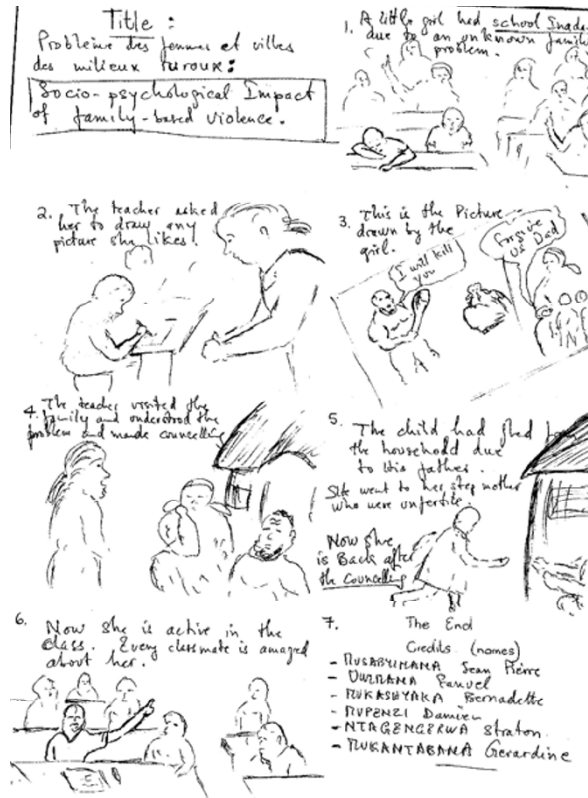 Title :
Problème des femmes et villes
des milieux ruraux :
Socio-psychological Impact
of family-based violence.
1. A little girl had school Inade
due to an unknown family
problem.
2. The teacher asked
her to draw any
picture she likes.
3. This is the Picture
drawn by the
girl.
I will kill
you
Forgive
us Dad
4. The teacher visited the
family and understood the
problem and made councelling
5. The child had fled
the household due
to his father.
She went to her step mother
who were unfertile.
Now she
is Back after
the councelling
6. Now she is active in the
class. Every classmate is amazed
about her.
7. The End
Credits (names)
- MUSABYIMANA Jean Pierre
- Bernadette
- Damien
- NTAGENGERWA Straton
- MUKANTABANA Gerardine